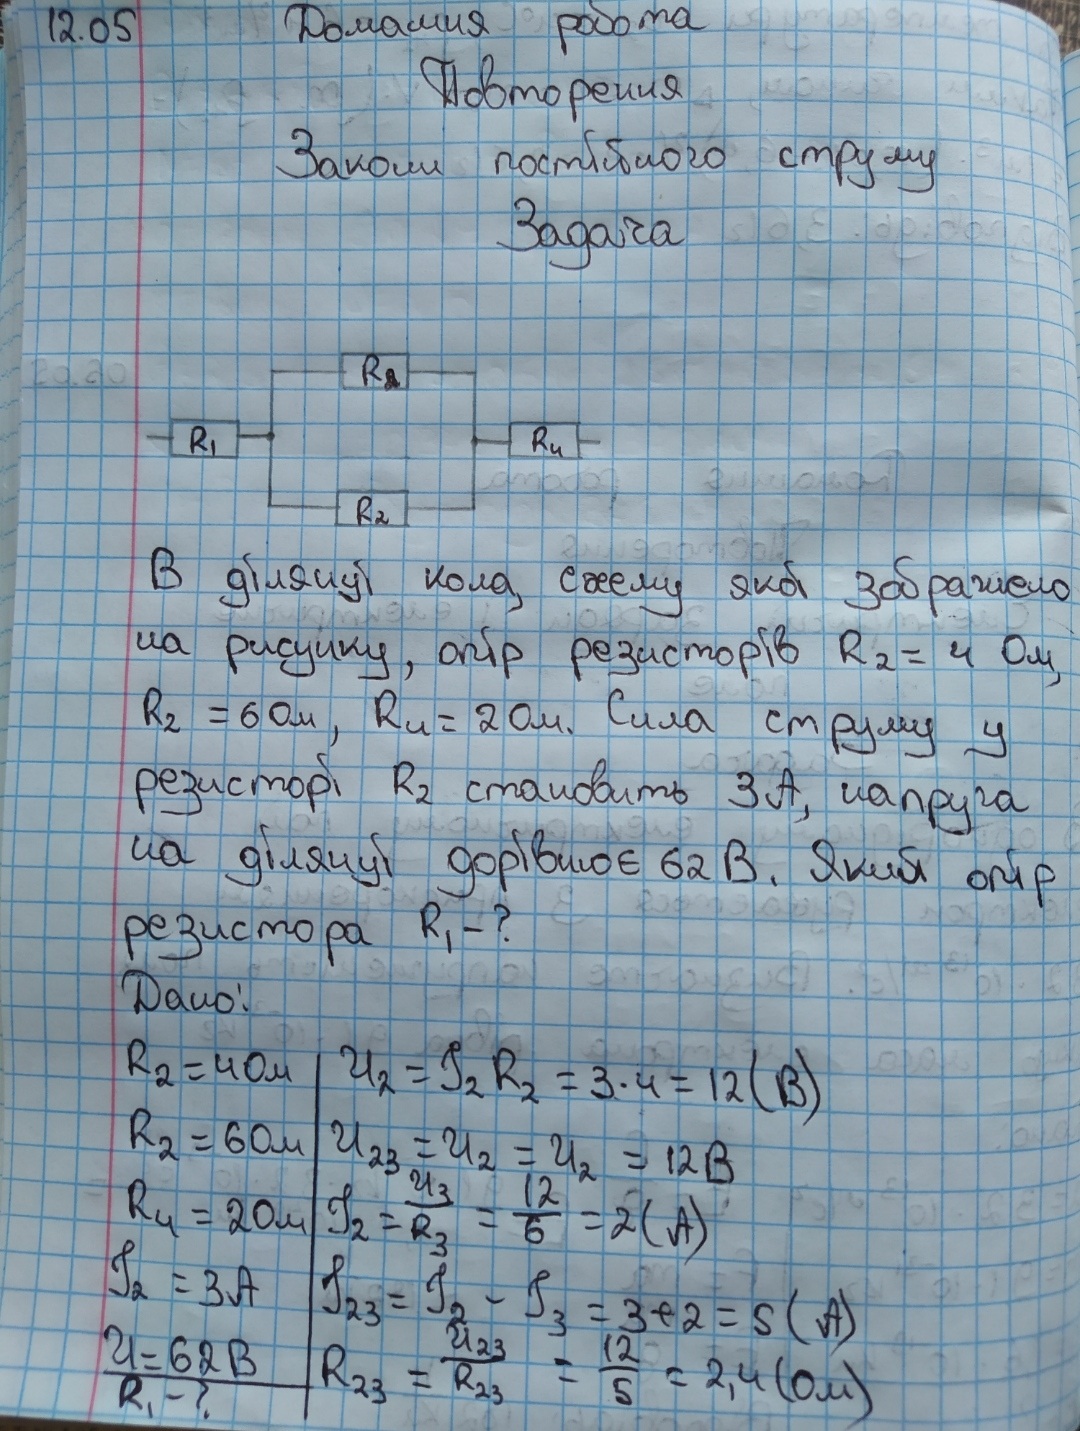 12.05 Домашня робота
Повторення
Закони постійного струму
Задача
R2
R1
R4
R2
В ділянці кола, схему якої зображено
на рисунку, опір резисторів R2 = 4 Ом,
R2 = 6 Ом, R4 = 2 Ом. Сила струму у
резисторі R2 становить 3А, напруга
на ділянці дорівнює 62 В. Який опір
резистора R1 - ?
Дано:
R2 = 4 Ом
R2 = 6 Ом
R4 = 2 Ом
I2 = 3А
U = 62 В
R1 - ?
U2 = I2 R2 = 3·4 = 12 (В)
U23 = U2 = U2 = 12 В
I2 = U3/R3 = 12/6 = 2 (А)
I23 = I2 - I3 = 3+2 = 5 (А)
R23 = U23/R23 = 12/5 = 2,4 (Ом)